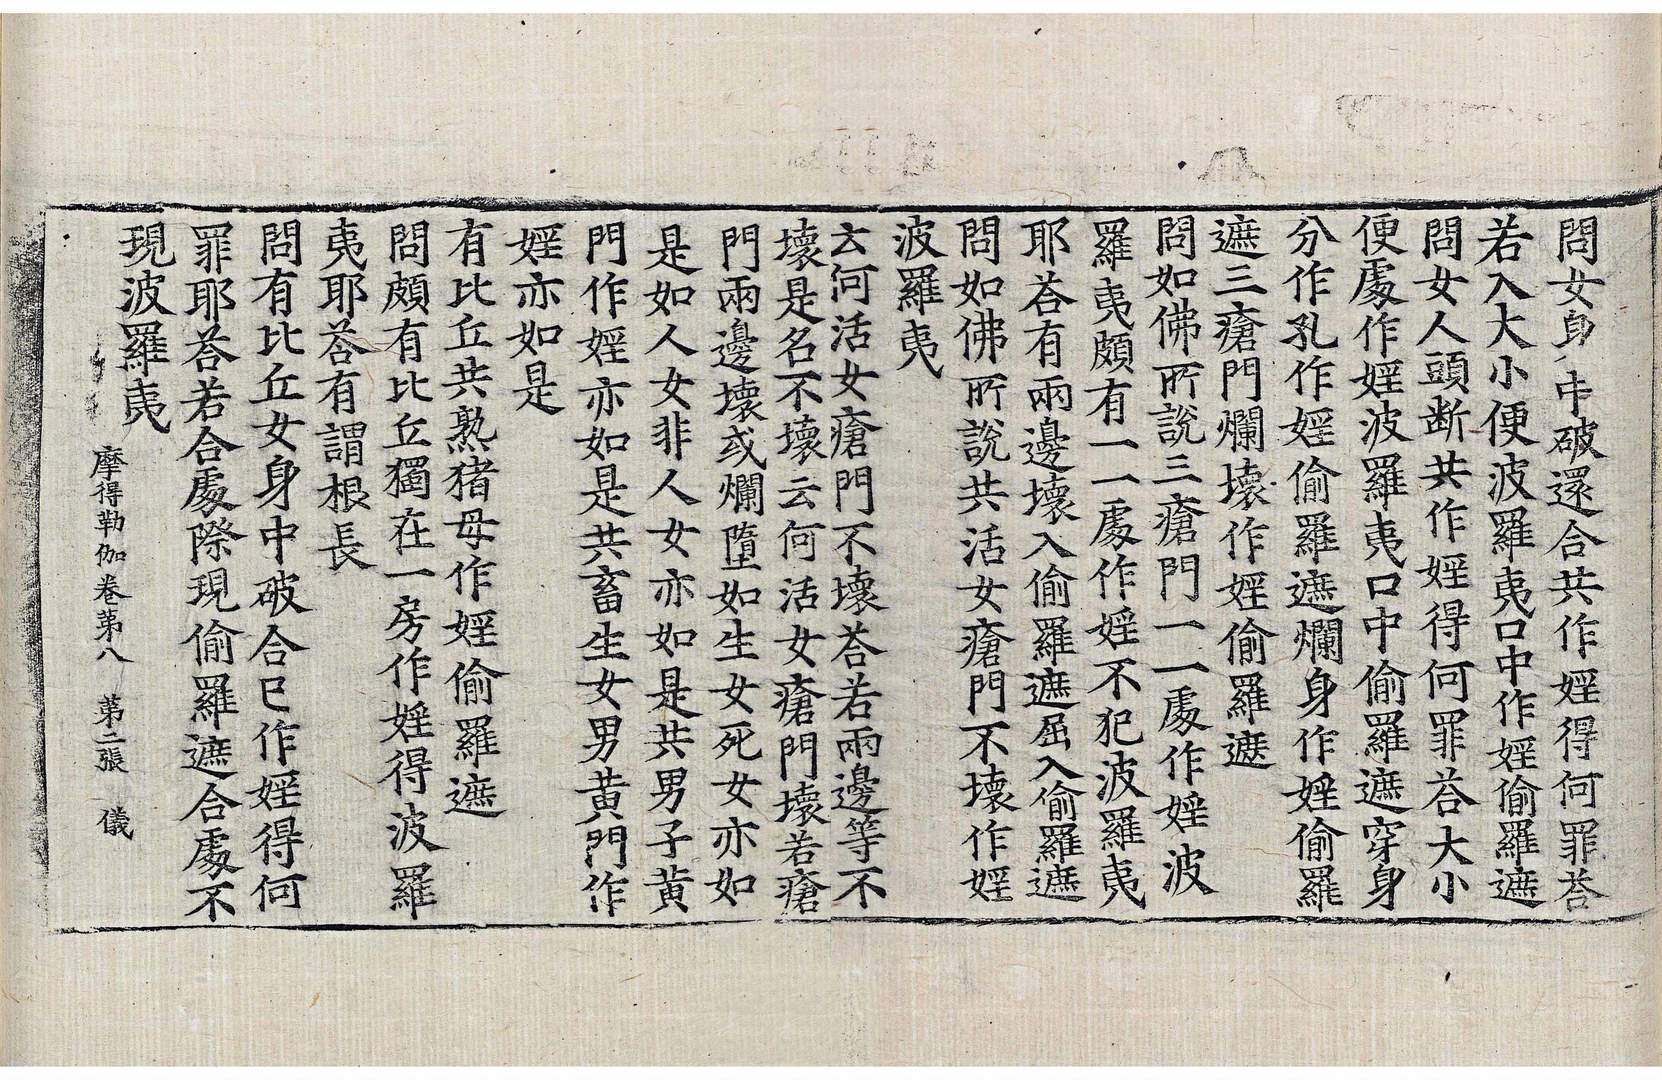 問女身中破還合共作婬得何罪荅
若入大小便波羅夷口中作婬偷羅遮
問女人頭断共作婬得何罪荅大小
便處作婬波羅夷口中偷羅遮穿身
分作孔作婬偷羅遮爛身作婬偷羅
遮三瘡門爛壞作婬偷羅遮
問如佛所說三瘡門一一處作婬波
羅夷頗有一一處作婬不犯波羅夷
耶荅有兩邊壞入偷羅遮屈入偷羅遮
問如佛所說共活女瘡門不壞作婬
波羅夷
云何活女瘡門不壞荅若兩邊等不
壞是名不壞云何活女瘡門壞若瘡
門兩邊壞或爛墮如生女死女亦如
是如人女非人女亦如是共男子黃
門作婬亦如是共畜生女男黃門作
婬亦如是
有比丘共熟猪母作婬偷羅遮
問頗有比丘獨在一房作婬得波羅
夷耶荅有謂根長
問有比丘女身中破合已作婬得何
罪耶荅若合處際現偷羅遮合處不
現波羅夷
摩得勒伽卷第八 第二張 儀